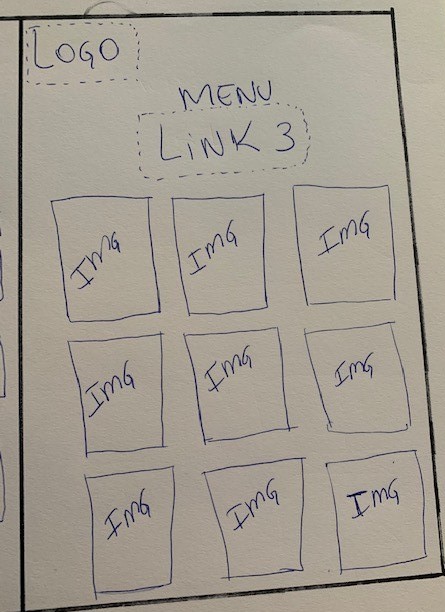 LOGO
MENU
LINK 3
IMG IMG IMG
IMG IMG IMG
IMG IMG IMG